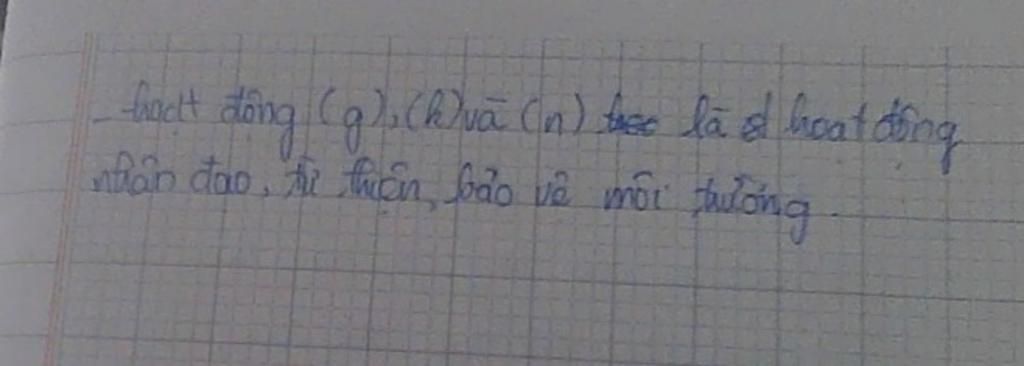 - hoạt động (g), (h) và (n) là hoạt động
nhân đạo, từ thiện, bảo vệ môi trường.